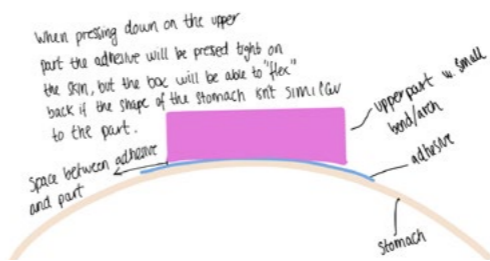 When pressing down on the upper
part the adhesive will be pressed tight on
the skin, but the box will be able to "flex"
back if the shape of the stomach isn't similar
to the part.
upper part w. small
bend/arch
Space between adhesive
and part
adhesive
stomach